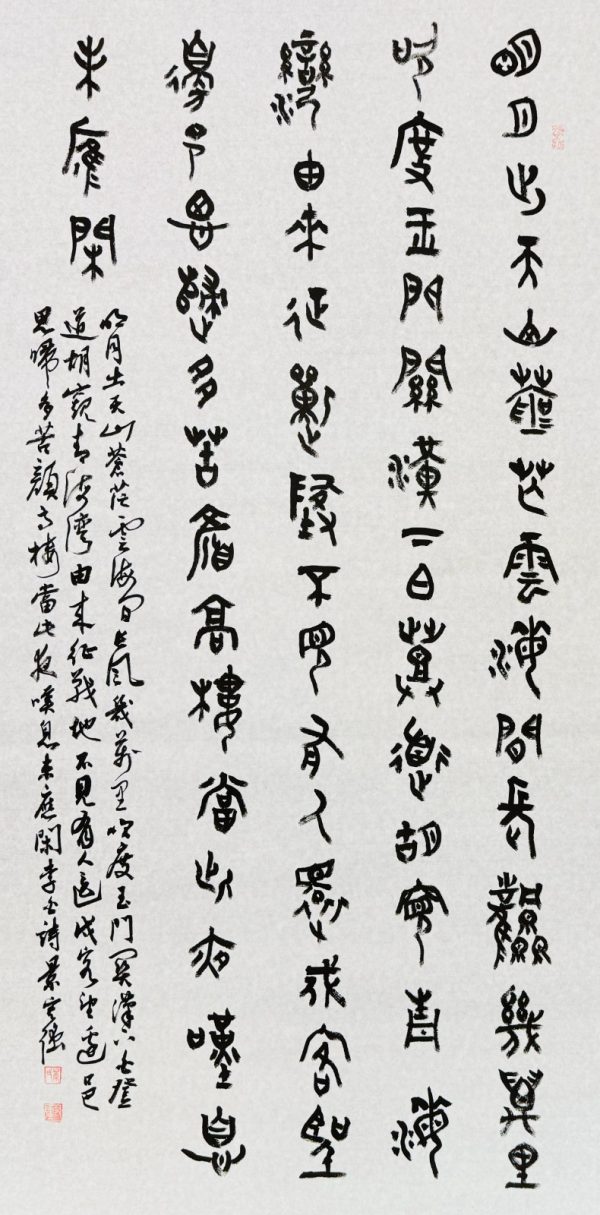 明月出天山蒼茫雲海間長風幾萬里
吹度玉門關漢下白登道胡窺青海
灣由來征戰地不見有人還戍客望
邊邑思歸多苦顏高樓當此夜嘆息
未應閑
明月出天山蒼茫雲海間長風幾萬里吹度玉門關漢下白登
道胡窺青海灣由來征戰地不見有人還戍客望邊邑
思歸多苦顏高樓當此夜嘆息未應閑李白詩